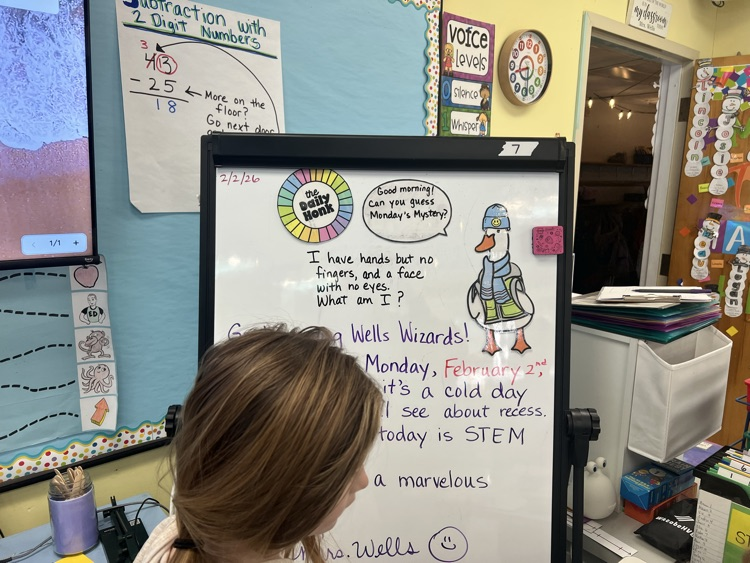 Subtraction with
2 Digit Numbers
3
4 13
- 25
18
More on the
floor?
Go next door
voice
levels
silence
Whisper
my classroom
7
2/2/26
the
Daily
Honk
Good morning!
Can you guess
Monday's Mystery?
I have hands but no
fingers, and a face
with no eyes.
What am I?
Wells Wizards!
Monday, February 2nd,
it's a cold day
see about recess.
today is STEM
a marvelous
Mrs. Wells
1/1
ED
A
ST